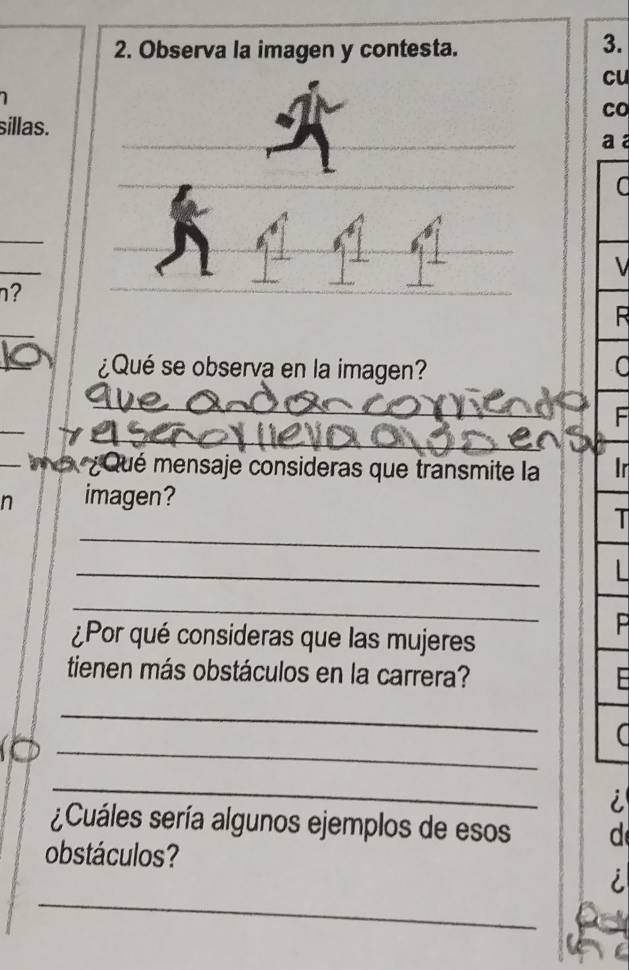 sillas.
n?
n
2. Observa la imagen y contesta.
¿Qué se observa en la imagen?
que andan corriendo
y el señor lleva algo en su
mano
¿Qué mensaje consideras que transmite la
imagen?
¿Por qué consideras que las mujeres
tienen más obstáculos en la carrera?
¿Cuáles sería algunos ejemplos de esos
obstáculos?
3.
cu
co
a a
C
V
R
C
F
Ir
T
L
P
E
C
¿
de
¿